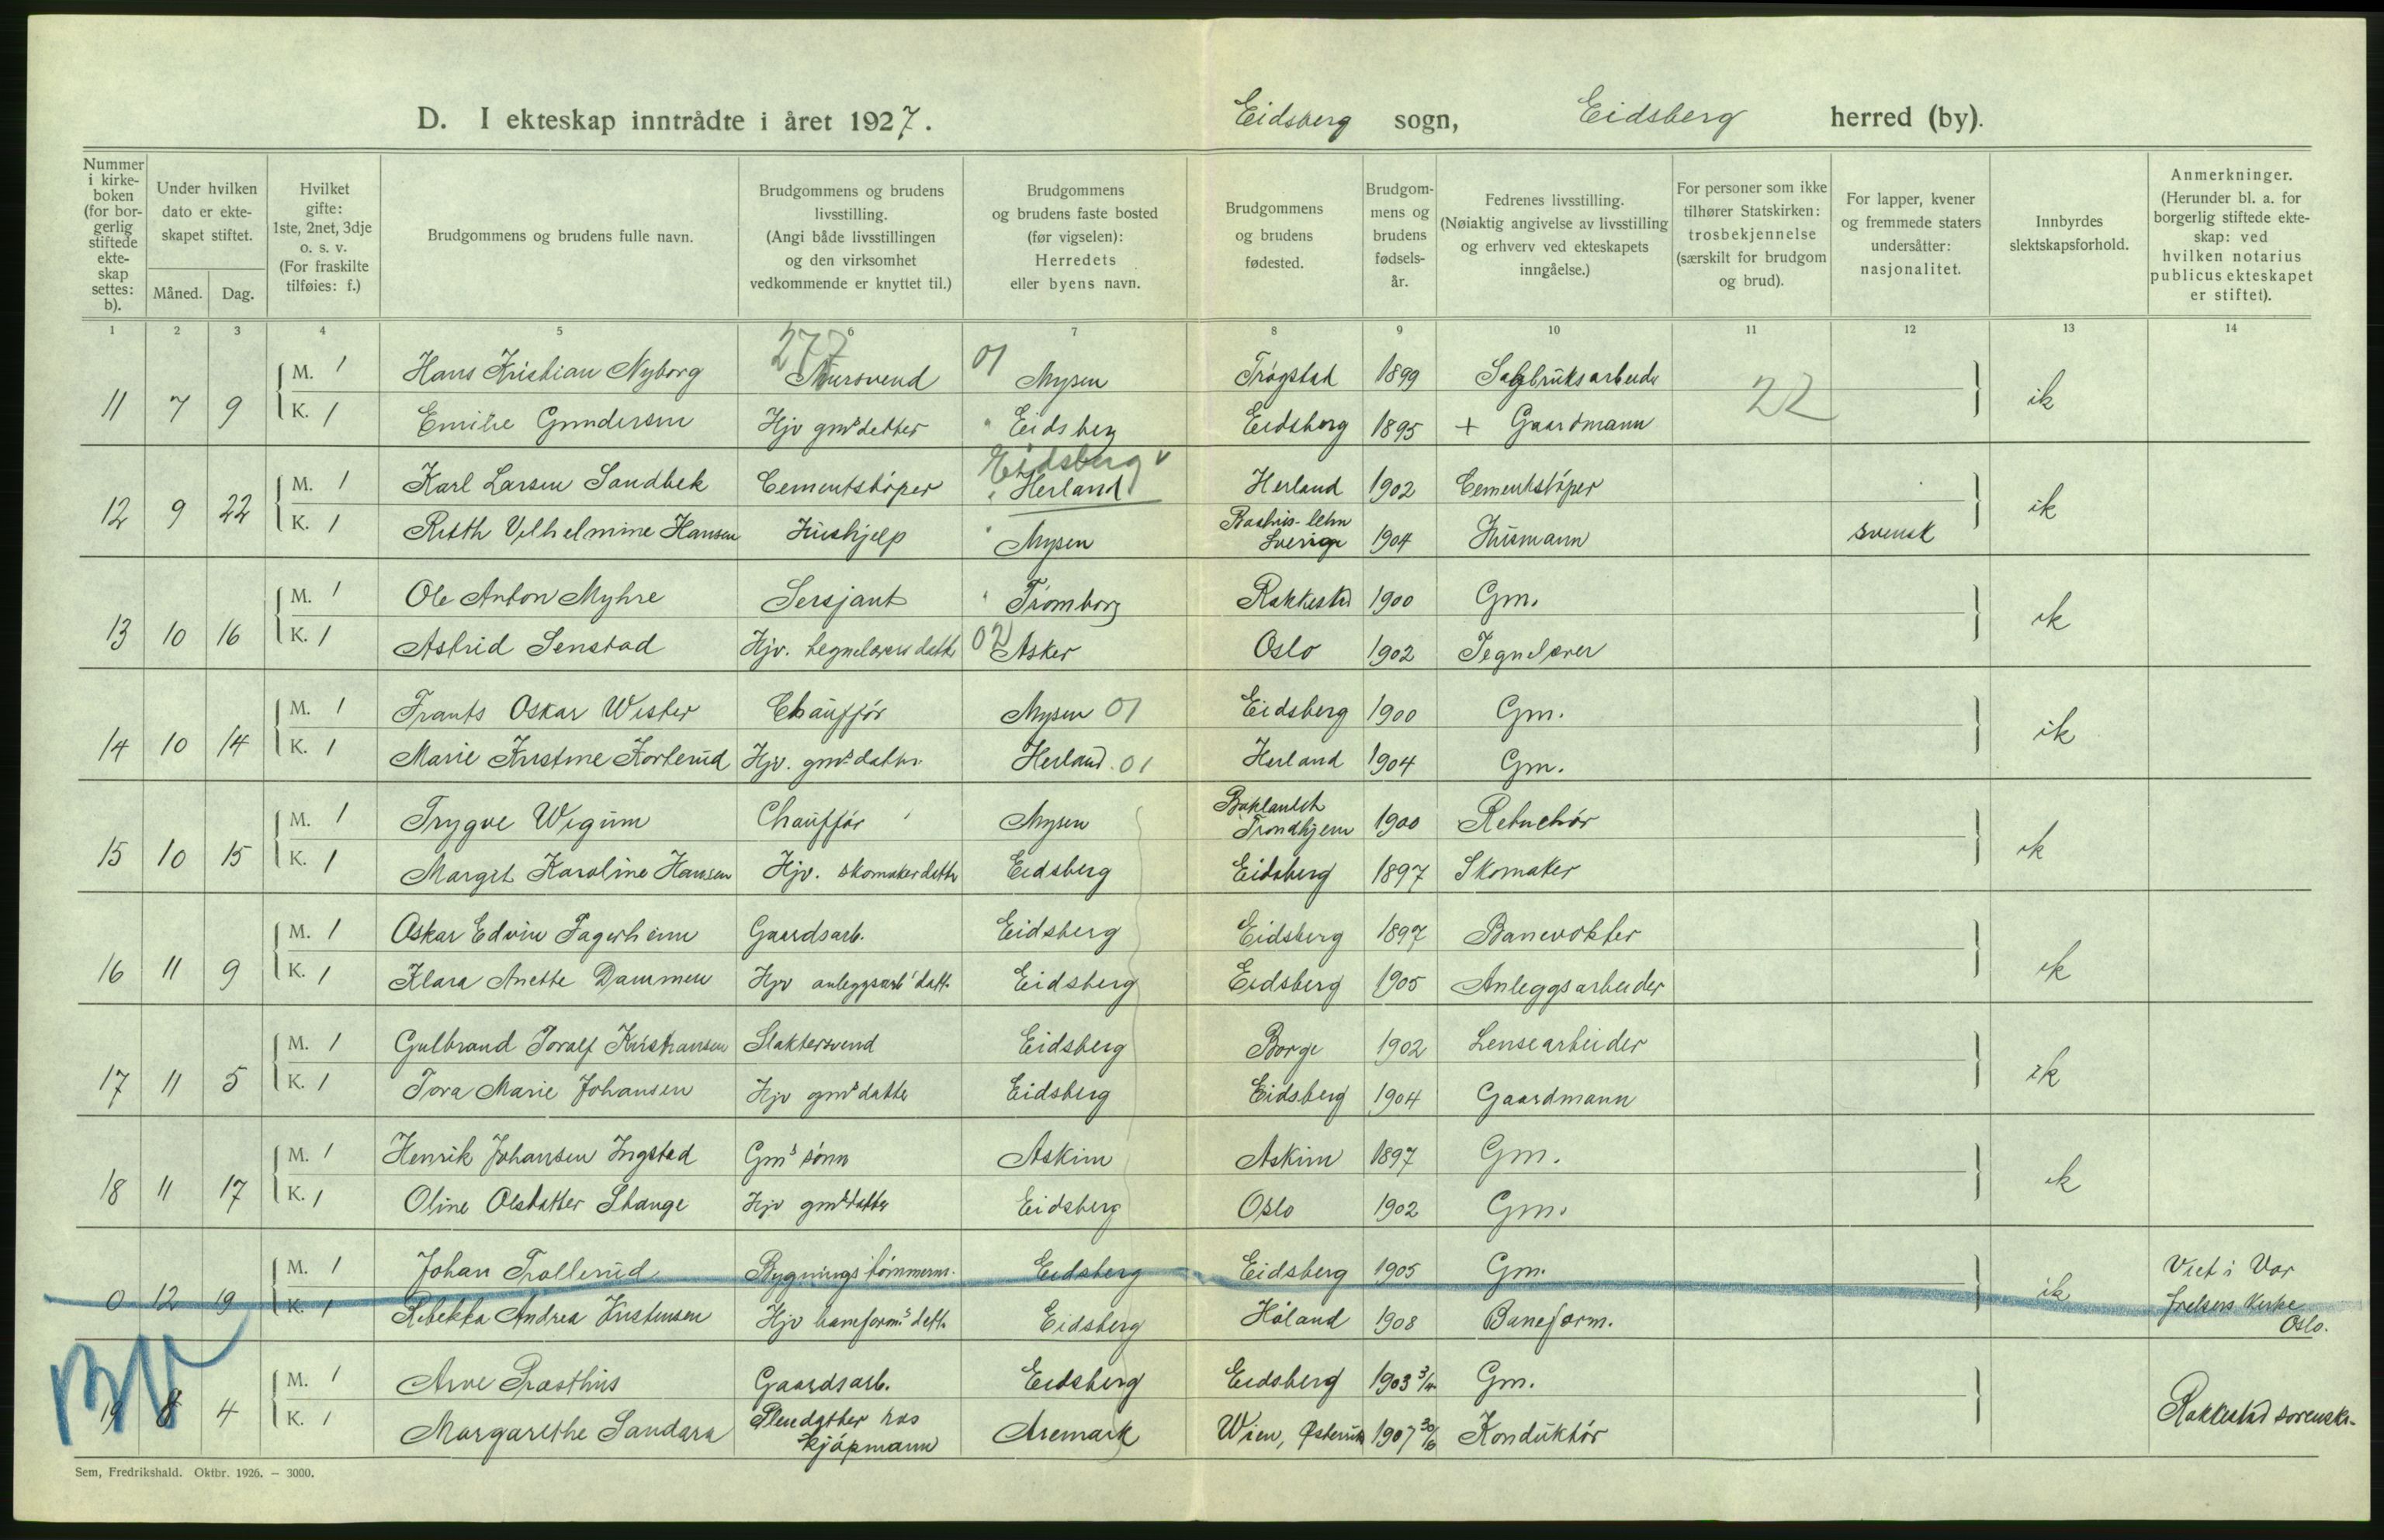 D. I ekteskap inntrådte i året 1927. Eidsberg sogn, Eidsberg herred (by).
Nummer i kirke-boken (for bor-gerlig stiftede ekte-skap settes: b).
Under hvilken dato er ekte-skapet stiftet.
Måned. Dag.
Hvilket gifte: 1ste, 2net, 3dje o. s. v. (For fraskilte tilføies: f.)
Brudgommens og brudens fulle navn.
Brudgommens og brudens livsstilling. (Angi både livsstillingen og den virksomhet vedkommende er knyttet til.)
Brudgommens og brudens faste bosted (før vigselen): Herredets eller byens navn.
Brudgommens og brudens fødested.
Brudgom-mens og brudens fødsels-år.
Fedrenes livsstilling. (Nøiaktig angivelse av livsstilling og erhverv ved ekteskapets inngåelse.)
For personer som ikke tilhører Statskirken: trosbekjennelse (særskilt for brudgom og brud).
For lapper, kvener og fremmede staters undersåtter: nasjonalitet.
Innbyrdes slektskapsforhold.
Anmerkninger. (Herunder bl. a. for borgerlig stiftede ekte-skap: ved hvilken notarius publicus ekteskapet er stiftet).
1 2 3 4 5 6 7 8 9 10 11 12 13 14
277 01 22
M. 1 Hans Kristian Nyborg Mursvend Mysen Trøgstad 1899 Sagbruksarbeider
11 7 9 K. 1 Emilie Gundersen Hjv gmsdatter " Eidsberg Eidsberg 1895 + Gaardmann ik
Eidsberg v
M. 1 Karl Larsen Sandbek Cementstøper " Herland Herland 1902 Cementstøper
12 9 22 K. 1 Ruth Vilhelmine Hansen Hushjelp " Mysen Bashus-lehn Sverige 1904 Husmann svensk ik
M. 1 Ole Anton Myhre Sersjant " Trømborg Rakkestad 1900 Gm.
13 10 16 K. 1 Astrid Senstad Hjv. tegnelærersdatter 02 Asker Oslo 1902 Tegnelærer ik
M. 1 Frants Oskar Wister Chauffør Mysen 01 Eidsberg 1900 Gm.
14 10 14 K. 1 Marie Kristine Korterud Hjv. gmsdatter Herland. 01 Herland 1904 Gm. ik
M. 1 Trygve Wigum Chauffør Mysen Baklandet Trondhjem 1900 Retuchør
15 10 15 K. 1 Margit Karoline Hansen Hjv. skomakerdatter Eidsberg Eidsberg 1897 Skomaker ik
M. 1 Oskar Edvin Fagerheim Gaardsarb. Eidsberg Eidsberg 1897 Banevokter
16 11 9 K. 1 Klara Anette Dammen Hjv anleggsarb' datt. Eidsberg Eidsberg 1905 Anleggsarbeider ik
M. 1 Gulbrand Toralf Kristiansen Slaktersvend Eidsberg Borge 1902 Lensearbeider
17 11 5 K. 1 Tora Marie Johansen Hjv gmsdatter Eidsberg Eidsberg 1904 Gaardmann ik
M. 1 Henrik Johansen Ingstad Gms sønn Askim Askim 1897 Gm.
18 11 17 K. 1 Oline Olsdatter Stange Hjv gmsdatter Eidsberg Oslo 1902 Gm. ik
M. 1 Johan Trollerud Bygningstømmerm. Eidsberg Eidsberg 1905 Gm. Viet i Vor
0 12 19 K. 1 Rebekka Andrea Kristensen Hjv baneforms dett. Eidsberg Høland 1908 Baneform. ik frelsers kirke Oslo.
M. 1 Arve Prasthus Gaardsarb. Eidsberg Eidsberg 1903 3/4 Gm.
19 8 4 K. 1 Margarethe Sandara Pleiedatter hos kjøpmann Aremark Wien, Østerrik 1907 30/6 Konduktør Rakkestad sorenskr.
Sem, Fredrikshald. Oktbr. 1926. — 3000.